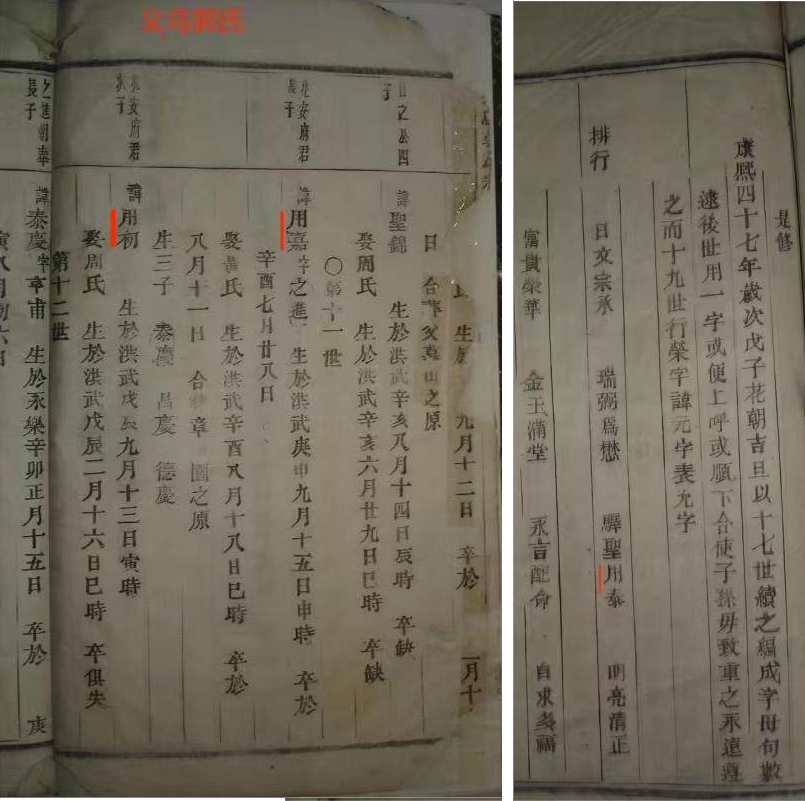 义乌郭氏
九月十二日 卒於
日 合葬
子
諱聖錦 生於洪武辛亥八月十四日辰時 卒缺
娶周氏 生於洪武辛亥六月廿九日巳時 卒缺
○第十一世
兆安府君
長子
諱用嘉字之進 生於洪武庚申九月十五日申時 卒於
辛酉七月廿八日
娶黃氏 生於洪武辛酉八月十八日巳時 卒於
八月十一日 合葬章 園之原
生三子 泰慶 昌慶 德慶
兆安府君
次子
諱用初 生於洪武戊辰九月十三日寅時
娶周氏 生於洪武戊辰二月十六日巳時 卒俱失
第十二世
之進朝奉
長子
諱泰慶字亨甫 生於永樂辛卯正月十五日 卒於 庚
是修
康熙四十七年歲次戊子花朝吉旦以十七世續之編成字母句數
逮後世用一字或便上呼或順下合使子孫毋致重之永遠遵
之而十九世行榮字諱元字表允字
排行
日文宗承 瑞弼爲懋 驛聖用泰 明亮清正
富貴榮華 金玉滿堂 永言配命 自求多福